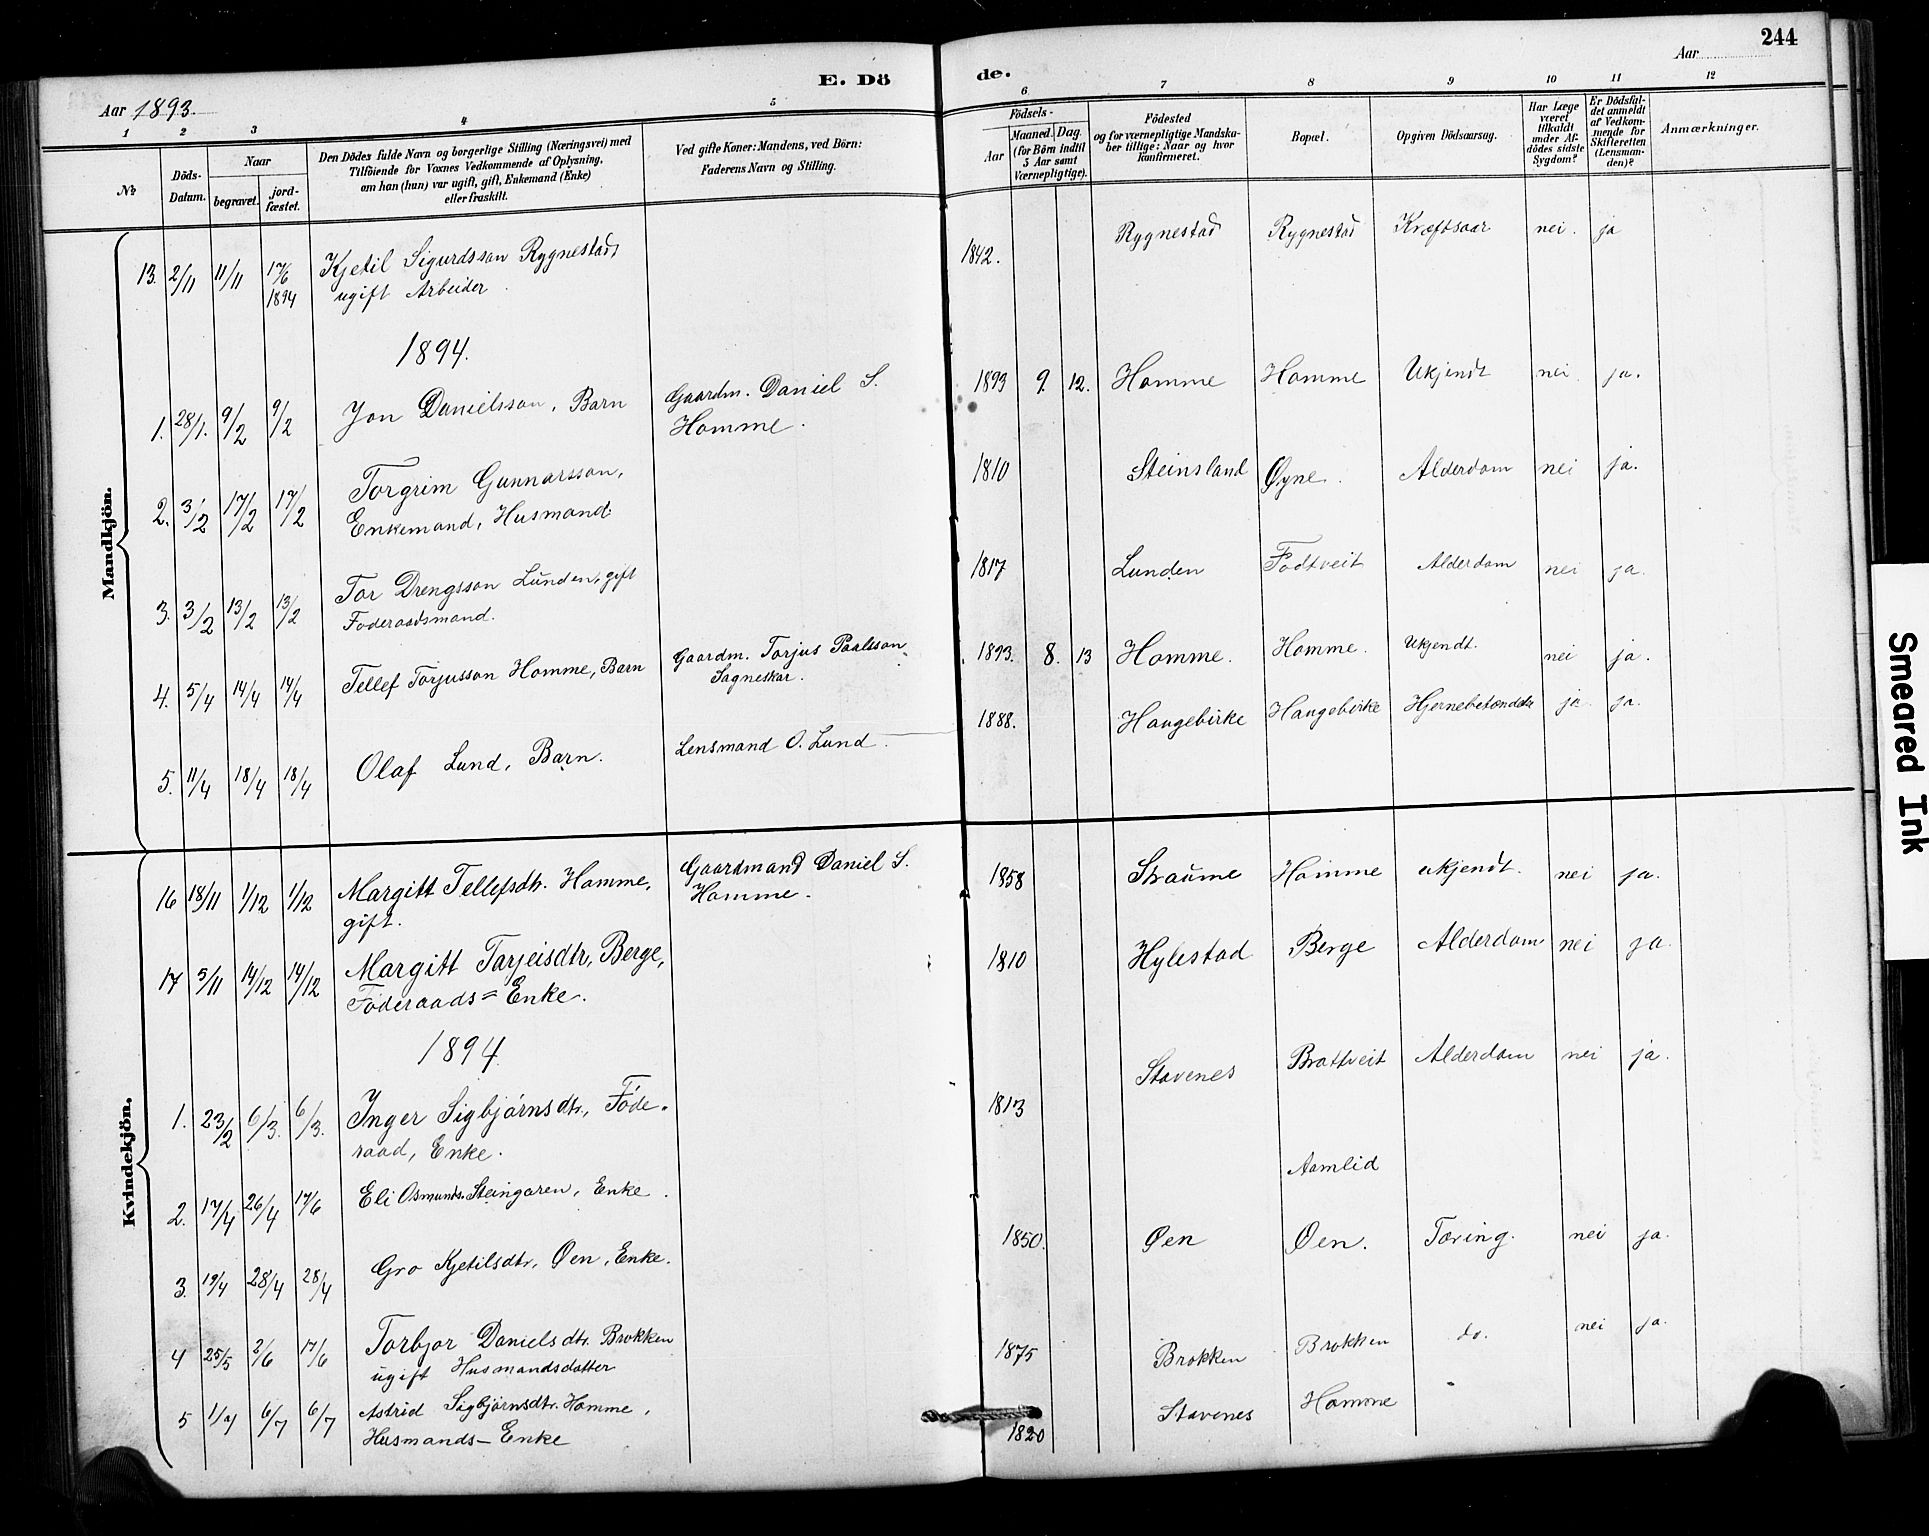 244
E. Dö
de.
Aar 1893.
Aar
1 2 3 4 5 6 7 8 9 10 11 12
No
Döds-Datum.
Naar
begravet.
jordfæstet.
Den Dödes fulde Navn og borgerlige Stilling (Næringsvei) med
Tilföiende for Voxnes Vedkommende af Oplysning,
om han (hun) var ugift, gift, Enkemand (Enke)
eller fraskilt.
Ved gifte Koner: Mandens, ved Börn:
Faderens Navn og Stilling.
Födsels-
Aar
Maaned. Dag.
(for Börn indtil
5 Aar samt
Værnepligtige).
Födested
og for værnepligtige Mandskaber tillige: Naar og hvor
konfirmeret.
Bopæl.
Opgiven Dödsaarsag.
Har Læge
været
tilkaldt
under Afdödes sidste
Sygdom?
Er Dödsfaldet anmeldt
af Vedkommende for
Skifteretten
(Lensmanden)?
Anmærkninger.
Mandkjön.
13. 2/11 11/11 17/6 1894 Kjetil Sigurdsson Rygnestad, 1842. Rygnestad Rygnestad Kræftsaar nei. ja
ugift Arbeider.
1894.
1. 28/1. 9/2 9/2 Jon Danielsson, Barn Gaardm. Daniel S. 1893 9. 12. Homme Homme Ukjendt nei ja.
Homme.
2. 3/2 17/2 17/2 Torgrim Gunnarsson, 1810 Steinsland Øyne. Alderdom nei ja.
Enkemand, Husmand.
3. 3/2 13/2 13/2 Tor Drengsson Lunden, gift 1817 Lunden Fodtveit Alderdom nei ja.
Foderaadsmand.
4. 5/4 14/4 14/4 Tellef Torjusson Homme, Barn Gaardm. Torjus Paalsson 1893. 8. 13 Homme. Homme. Ukjendt. nei ja.
Sagneskar.
5. 11/4 18/4 18/4 Olaf Lund, Barn. Lensmand O. Lund. 1888. Haugebirke Haugebirke Hjernebetændelse ja ja.
Kvindekjön.
16 18/11 1/12 1/12 Margitt Tellefsdtr. Homme, Gaardmand Daniel S. 1858 Straume Homme ukjendt. nei ja.
gift. Homme.
17 5/11 14/12 14/12 Margitt Tarjeisdtr, Berge, 1810 Hylestad Berge Alderdom nei ja.
Føderaads=Enke.
1894
1. 23/2 6/3. 6/3. Inger Sigbjørnsdtr, Føde- 1813 Stavenes Brattveit Alderdom nei ja.
raad, Enke.
2. 17/4 26/4 17/6 Eli Osmunds. Steingaren, Enke. Aamlid
3. 19/4 28/4 28/4 Gro Kjetilsdtr, Øen, Enke. 1850. Øen Øen. Tæring. nei ja.
4 25/5 2/6 17/6 Torbjor Danielsdtr. Brokken 1875 Brokken Brokken do. nei ja.
ugift Husmandsdatter
5 6/7 6/7 Astrid Sigbjørnsdtr. Homme, 1820 Stavenes Homme
Husmands-Enke
Smeared Ink